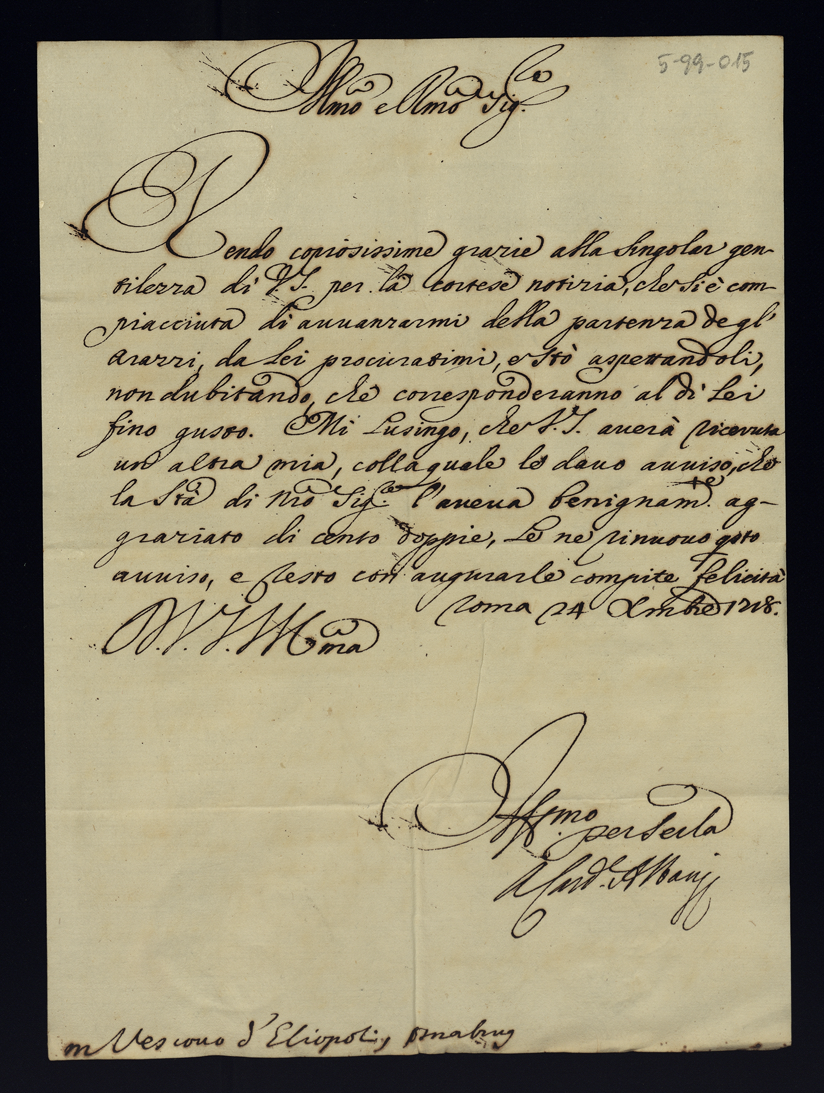 5-99-015
Illmo e Rmo Sigre
Rendo copiosissime grazie alla singolar gen-
tilezza di V.S. per la cortese notizia, che si è com-
piacciuta di auuanzarmi della partenza degl'
Arazzi, da Lei procuratimi, e stò aspettandoli,
non dubitando, che corresponderanno al di Lei
fino gusto. Mi Lusingo, che V.S. auerà riceuuta
un altra mia, colla quale le dauo auuiso, che
la Stà di Nro Sigre l'aueua benignamte ag-
graziato di cento doppie, Le ne rinuouo qsto
auuiso, e resto con augurarle compite felicità
Roma 24 Xmbre 1718.
D.V.S. Illma
Affmo per Serla
A Card. Albani
M Vescouo d'Eliopoli, Osnabrug